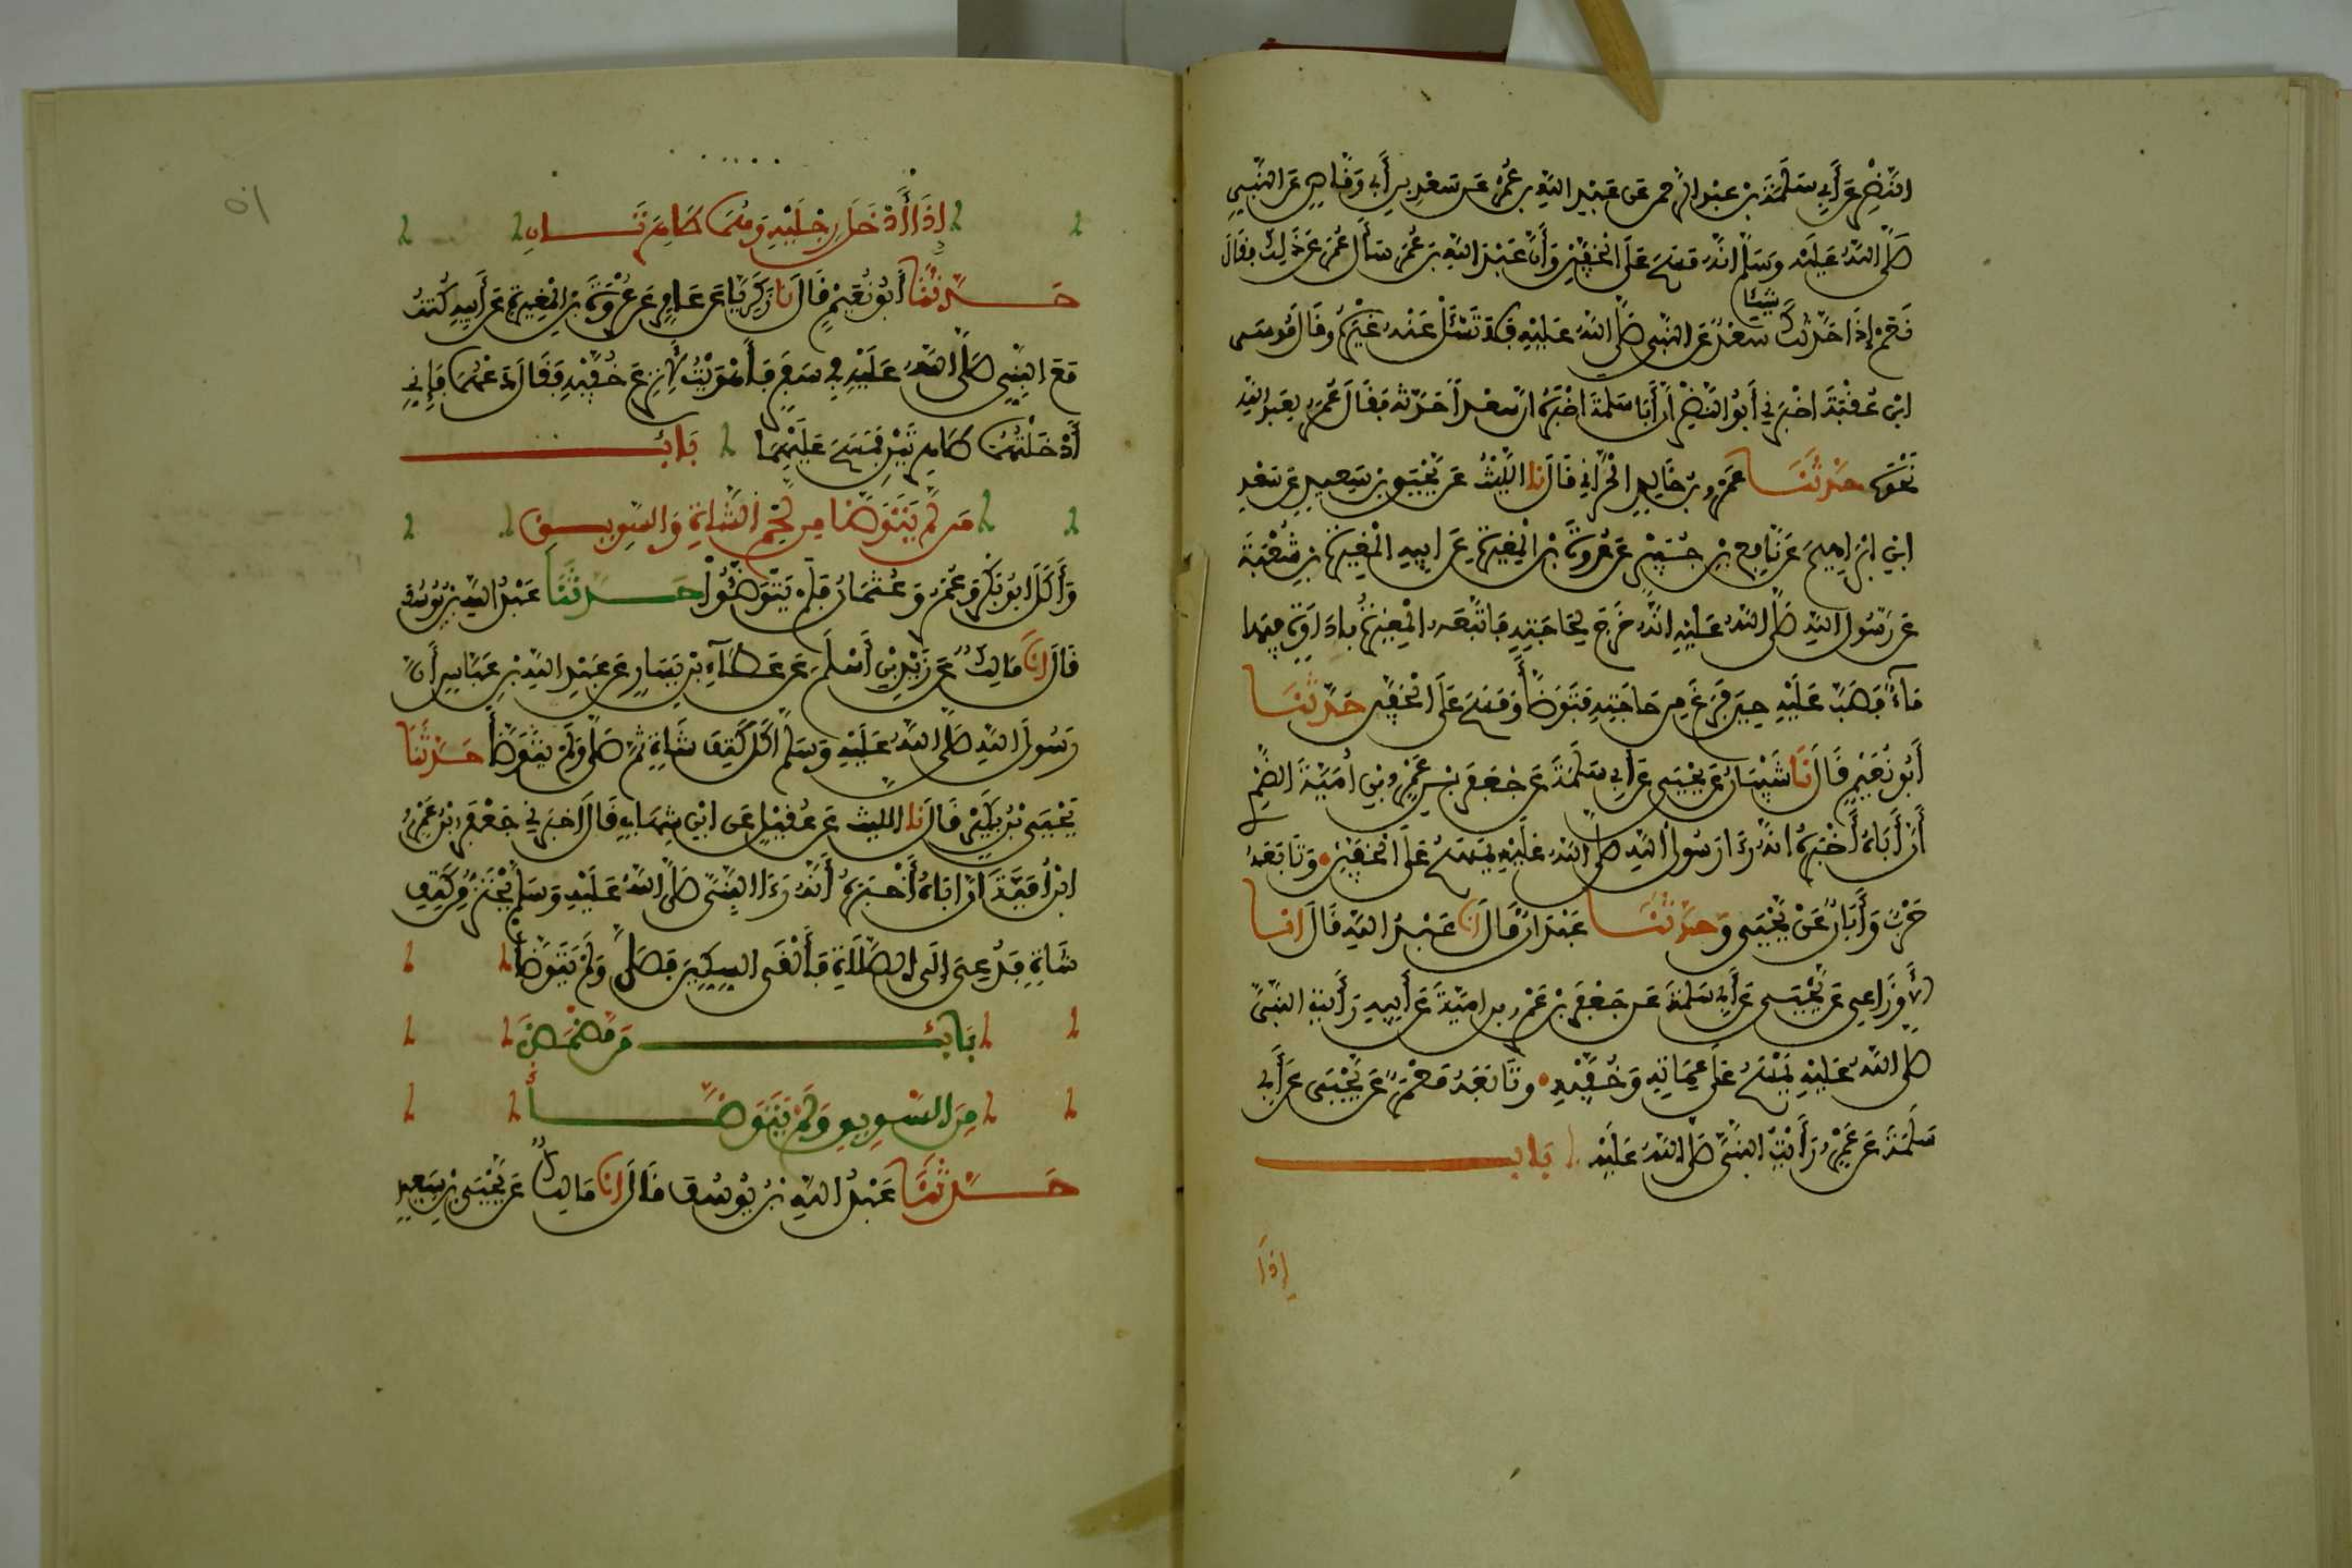 النضر عن أبي سلمة بن عبد الرحمن عن عبد الله بن عمر عن سعد بن أبي وقاص عن النبي
صلى الله عليه وسلم انه مسح على الخفين وأن عبد الله بن عمر سأل عمر عن ذلك فقال
نعم إذا حدثك شيئا سعد عن النبي صلى الله عليه فلا تسئل عنه غيره وقال موسى
ابن عقبة اخبرني أبو النضر أن أبا سلمة اخبره ان سعدا حدثه فقال عمر لعبد الله
نحوه حدثنا عمرو بن خالد الحراني قال نا الليث عن يحيى بن سعيد عن سعد
ابن ابراهيم عن نافع بن جبير عن عروة بن المغيرة عن ابيه المغيرة بن شعبة
عن رسول الله صلى الله عليه انه خرج لحاجته فاتبعه المغيرة باداوة فيها
ماء فصب عليه حين فرغ من حاجته فتوضأ ومسح على الخفين حدثنا
أبو نعيم قال نا شيبان عن يحيى عن أبي سلمة عن جعفر بن عمرو بن أمية الضمري
أن أباه أخبره انه رءا رسول الله صلى الله عليه يمسح على الخفين وتابعه
حرب وأبان عن يحيى وحدثنا عبدان قال انا عبد الله قال انا
الأوزاعي عن يحيى عن أبي سلمة عن جعفر بن عمرو بن امية عن أبيه رأيت النبي
صلى الله عليه يمسح على عمامته وخفيه وتابعه معمر عن يحيى عن أبي
سلمة عن عمرو رأيت النبي صلى الله عليه باب
إذا
٥١
إذا أدخل رجليه وهما طاهرتان
حدثنا أبو نعيم قال نا زكريا عن عامر عن عروة بن المغيرة عن أبيه كنت
مع النبي صلى الله عليه في سفر فأهويت لأنزع خفيه فقال دعهما فإني
أدخلتهما طاهرتين فمسح عليهما باب
من لم يتوضأ من لحم الشاة والسويق
وأكل ابو بكر وعمر وعثمان فلم يتوضئوا حدثنا عبد الله بن يوسف
قال انا مالك عن زيد بن أسلم عن عطاء بن يسار عن عبد الله بن عباس أن
رسول الله صلى الله عليه وسلم اكل كتف شاة ثم صلى ولم يتوضأ حدثنا
يحيى بن بكير قال نا الليث عن عقيل عن ابن شهاب قال اخبرني جعفر بن عمرو
ابن أمية ان اباه أخبره أنه رءا النبي صلى الله عليه وسلم يحتز من كتف
شاة فدعي إلى الصلاة فألقى السكين فصلى ولم يتوضأ
باب من مضمض
من السويق ولم يتوضأ
حدثنا عبد الله بن يوسف قال انا مالك عن يحيى بن سعيد